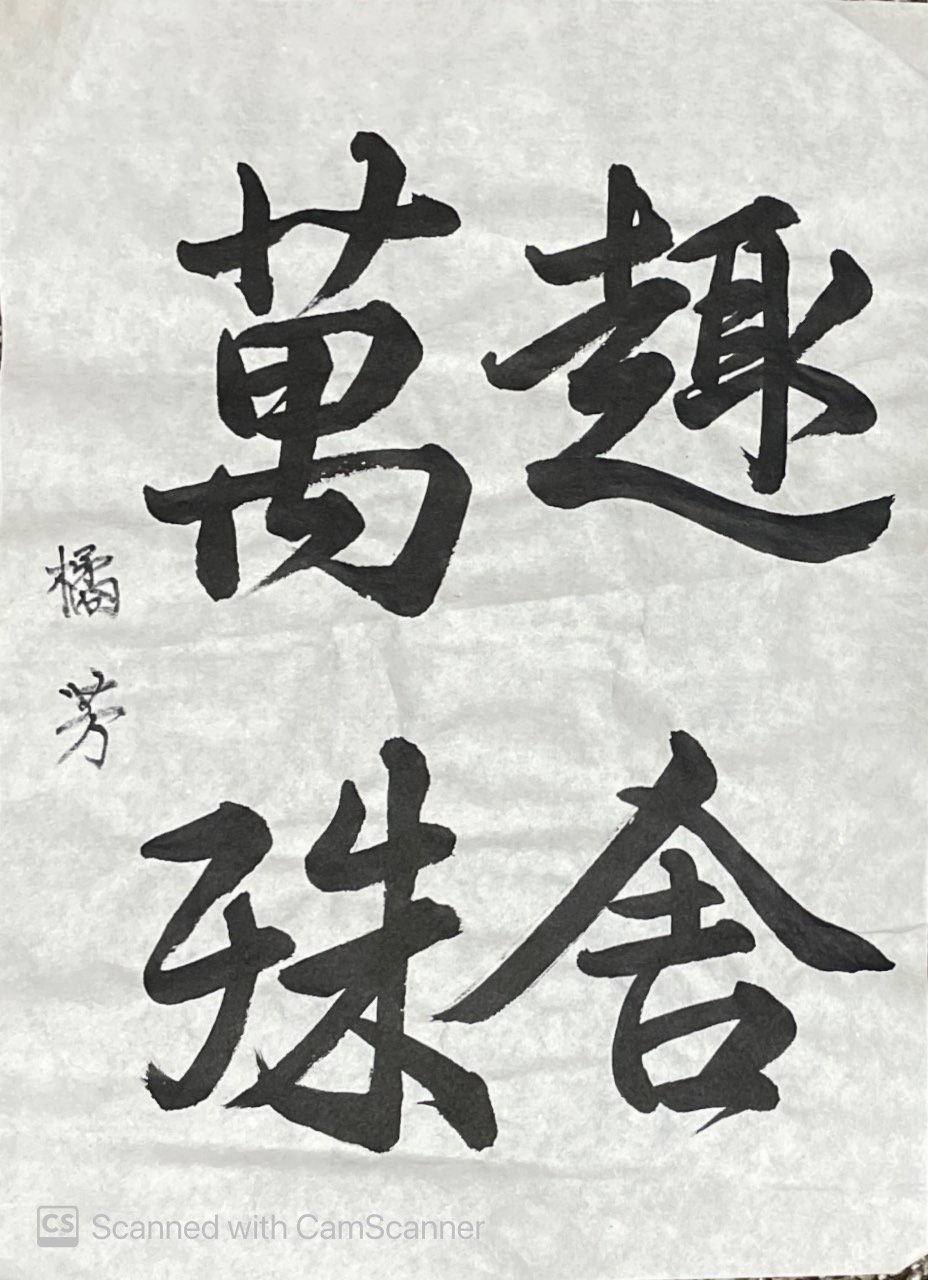 趣舍
萬殊
橘芳
CS Scanned with CamScanner